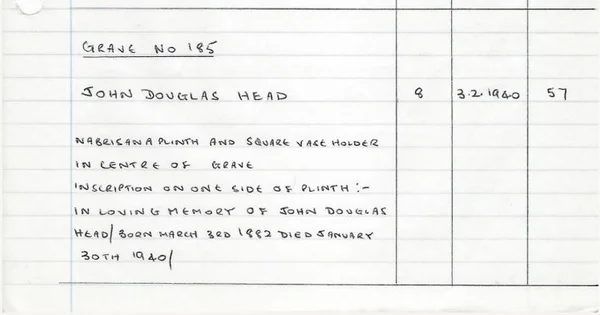 GRAVE NO 185
JOHN DOUGLAS HEAD 8 3.2.1940 57
NABRISANA PLINTH AND SQUARE VASE HOLDER
IN CENTRE OF GRAVE
INSCRIPTION ON ONE SIDE OF PLINTH:-
IN LOVING MEMORY OF JOHN DOUGLAS
HEAD/ BORN MARCH 3RD 1882 DIED JANUARY
30TH 1940/